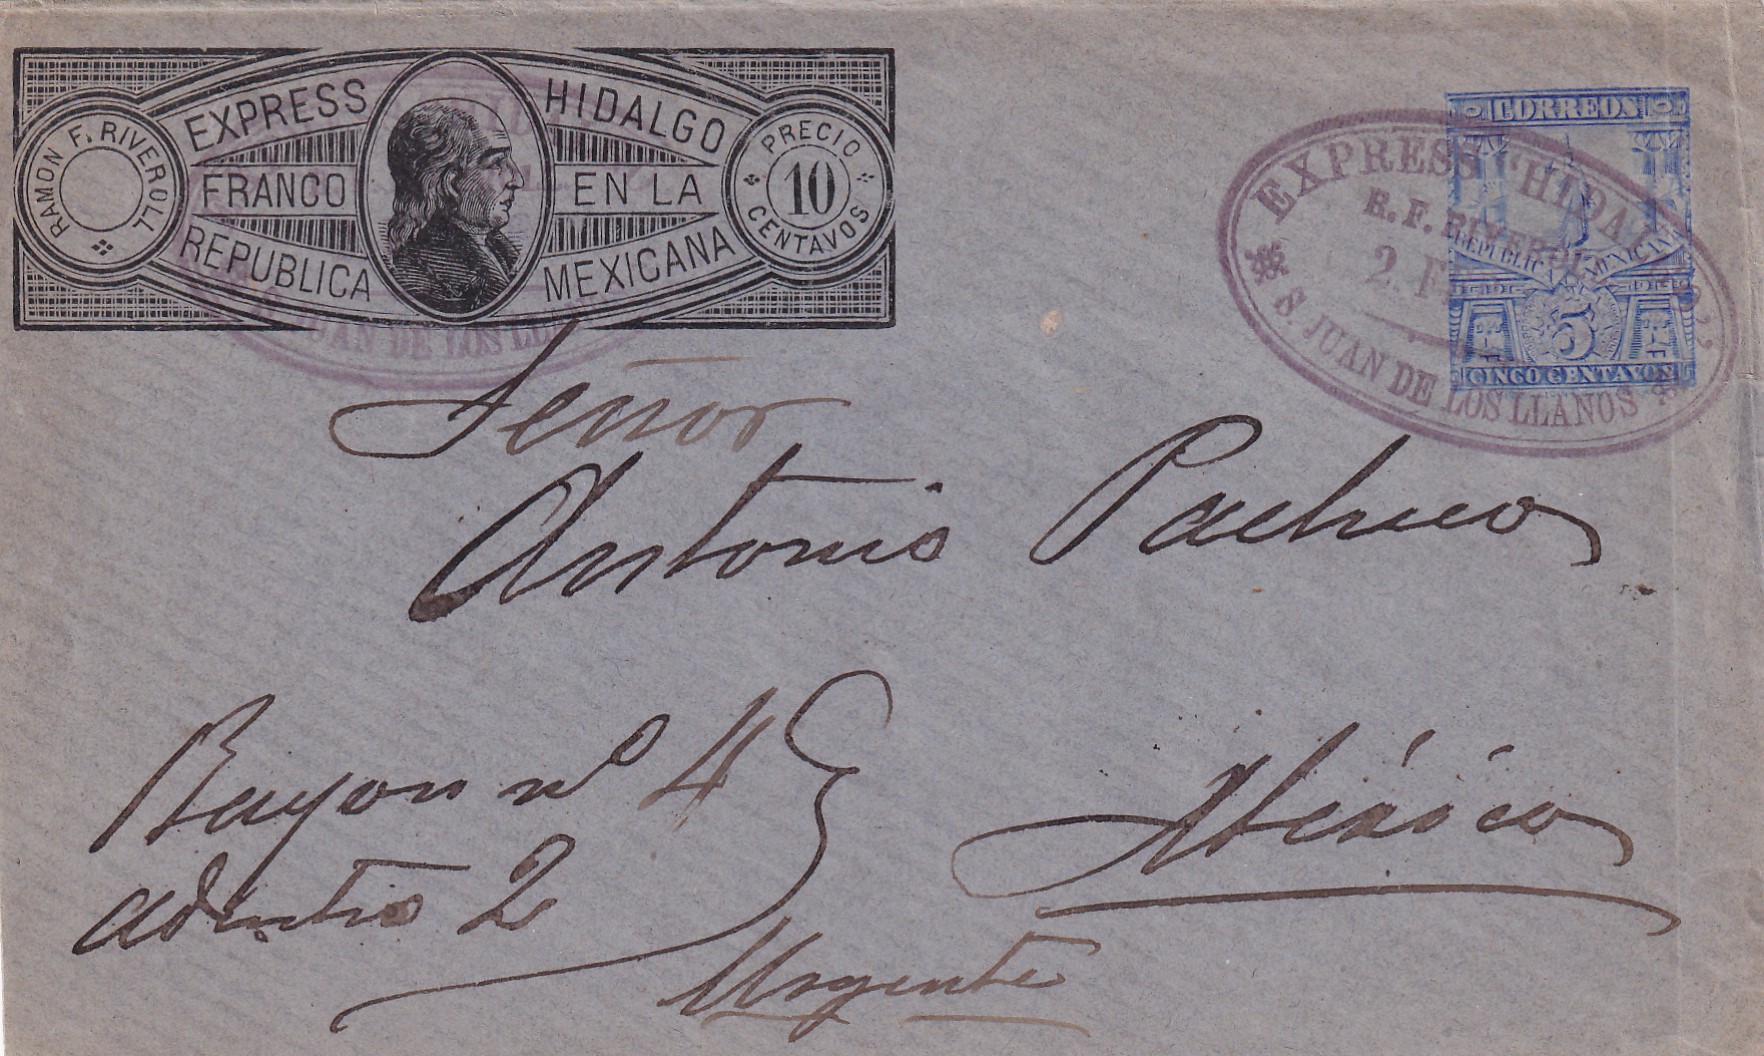 EXPRESS HIDALGO
FRANCO EN LA
REPUBLICA MEXICANA
RAMON F. RIVEROLL
PRECIO
10
CENTAVOS
CORREOS
REPUBLICA MEXICANA
5
CINCO CENTAVOS
EXPRESS "HIDALGO"
R. F. RIVEROLL
2.
S. JUAN DE LOS LLANOS
JUAN DE LOS
Señor
Antonio Pacheco
Rayon nº 4
adentro 2
México
Urgente